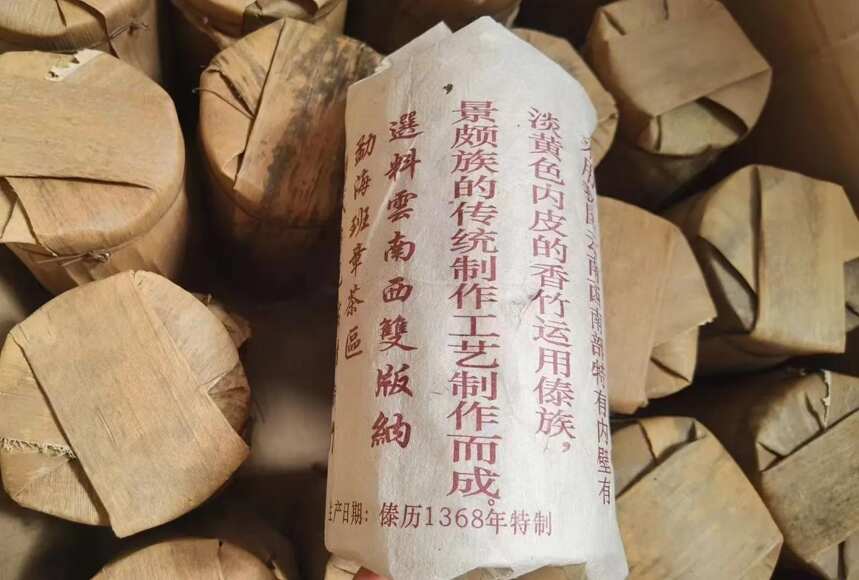 国云南西南部特有内壁有
淡黄色内皮的香竹运用傣族，
景颇族的传统制作工艺制作而成。
選料雲南西雙版納
勐海班章茶區
生产日期：傣历1368年特制